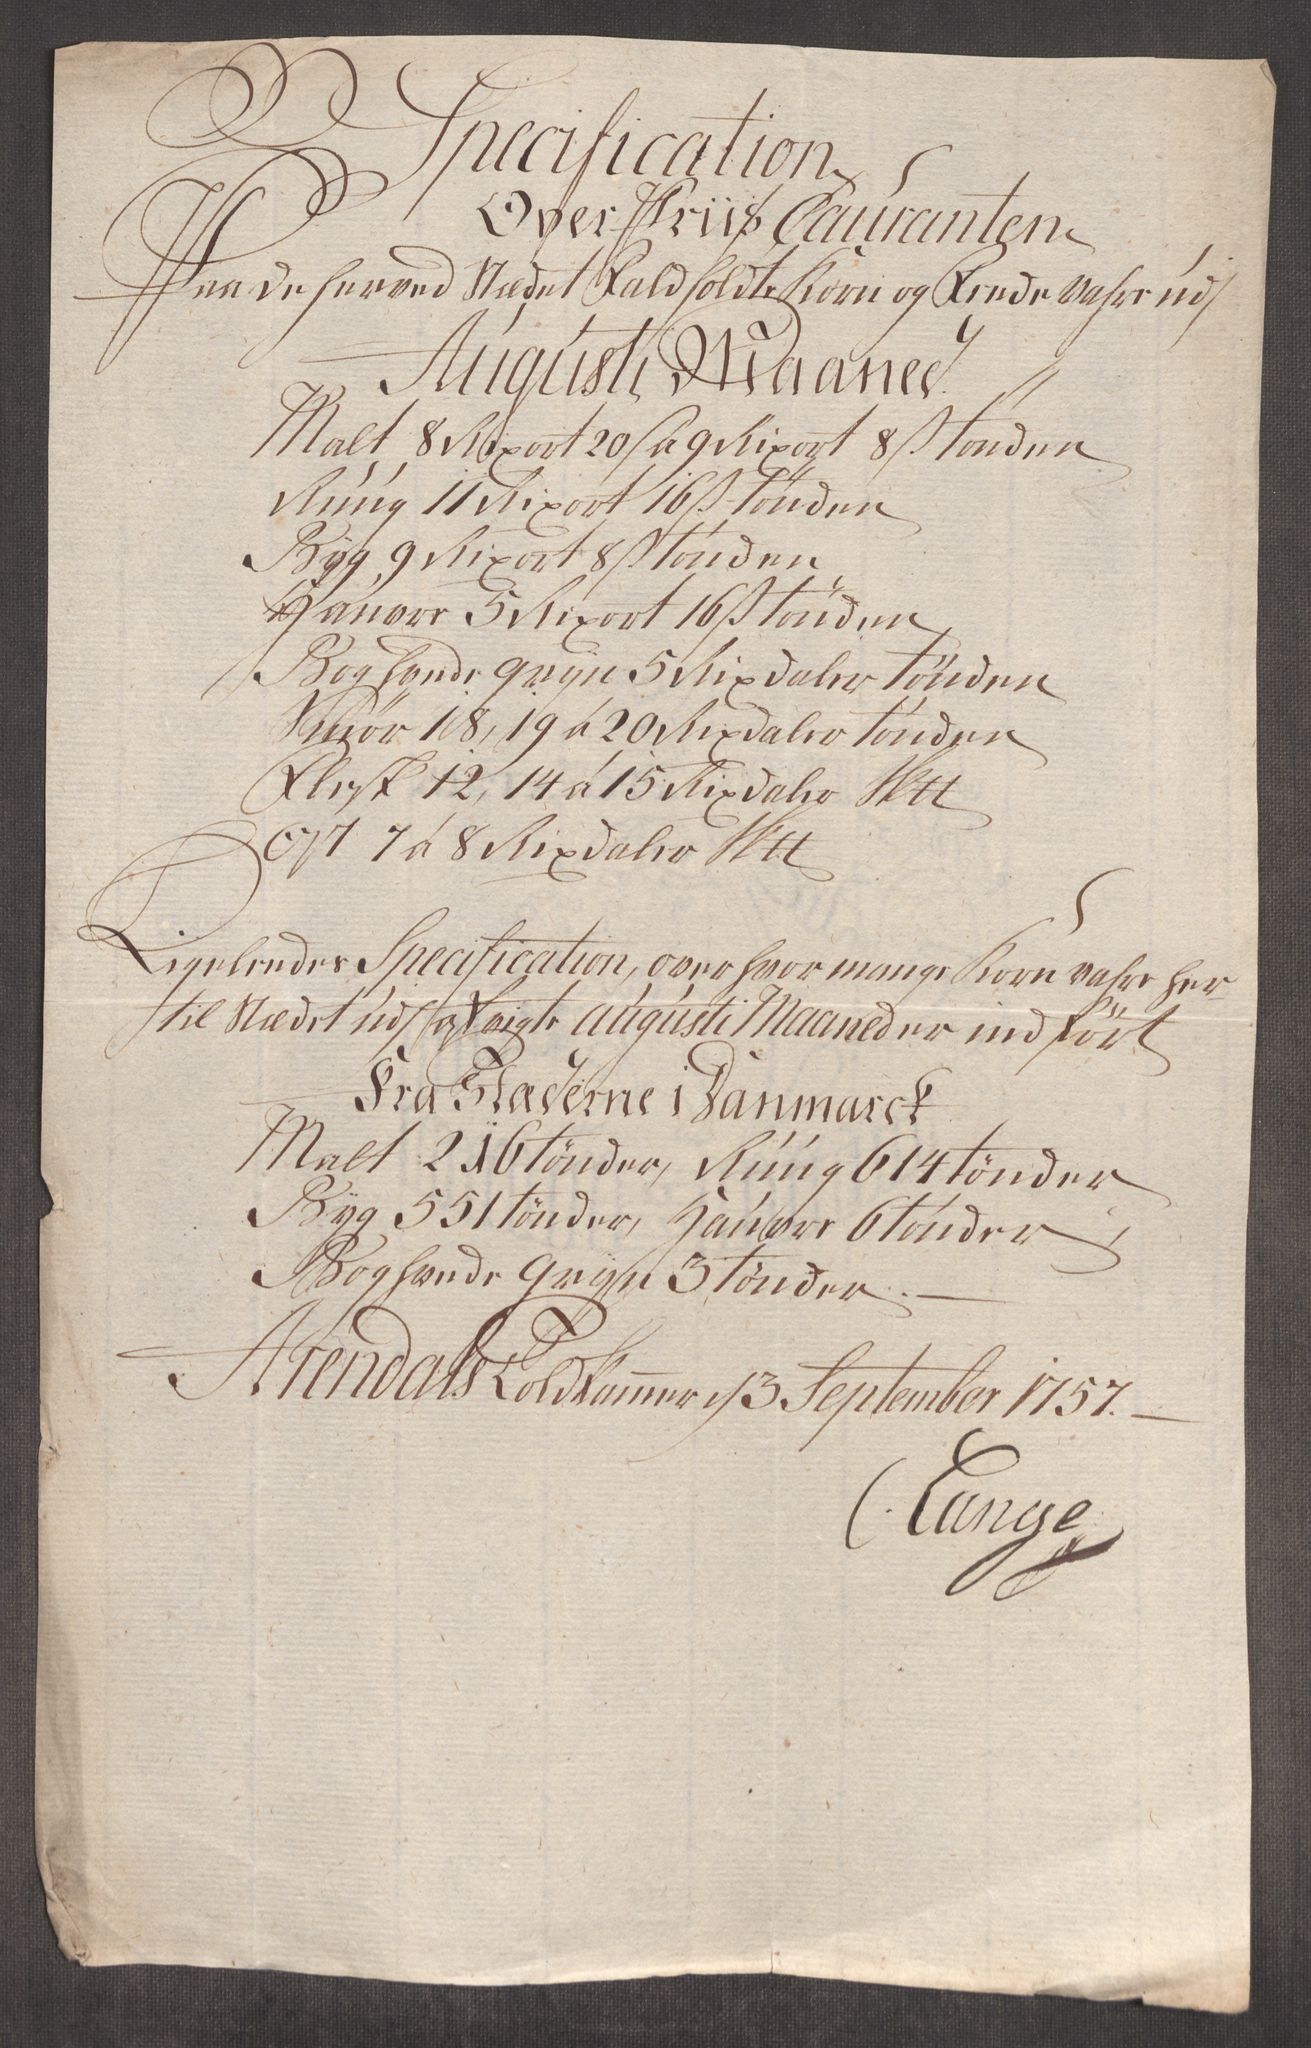 Specification
Over Priis Couranten
Paa de her ved Stædet Faldholdte Korn og Feede vahre udj
Augusti Maaned.
Malt 8 Rixort 20 ß á 9 Rixort 8 ß tönden
Rúúg 11 Rixort 16 ß tönden
Byg 9 Rixort 8 ß tönden
Haure 5 Rixort 16 ß tönden
Boghvede gryn 5 Rixdaler tönden
Smör 18, 19 á 20 Rixdaler tönden
Flesk 12, 14 á 15 Rixdaler Sktt
Ost 7 á 8 Rixdaler Sktt
Ligeleedes Specification, over hvor mange Korn vahre her
til Stædet udj afvigte augusti Maaned er indført
Fra Stæderne i Danmarck
Malt 216 tönder, Rúúg 614 tönder
Byg 551 tönder, Haure 6 tönder
Boghvede gryn 3 tönder. —
Arendals Toldkammer d 3 September 1757. —
C. Lange